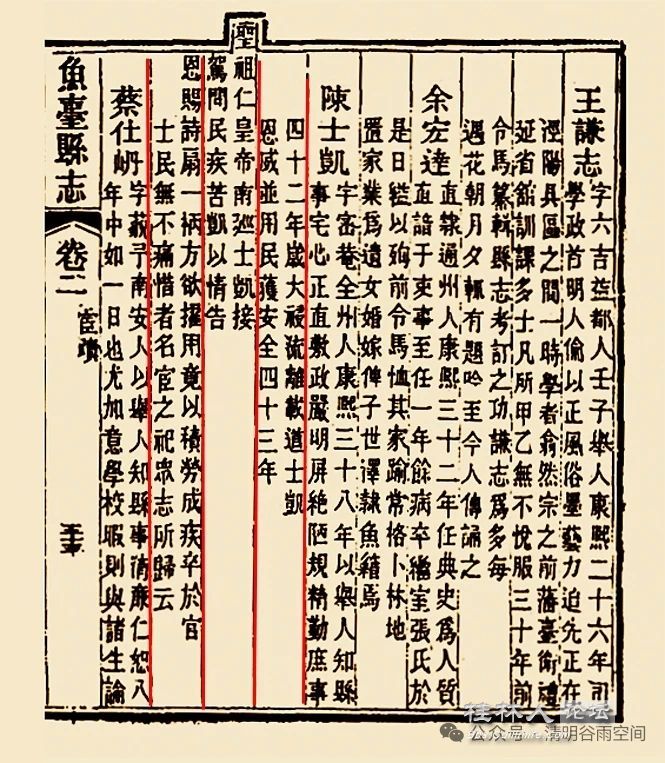 王謙志 字六吉益都人壬子舉人康熙二十六年司
學政首明人倫以正風俗墨藝力追先正在
涇陽具區之間一時學者翕然宗之前藩臺衛禮
延省舘訓課多士凡所甲乙無不悅服三十年前
令馬纂輯縣志考訂之功謙志爲多每
遇花朝月夕輒有題吟至今人傳誦之
余宏達 直隷通州人康熙三十二年任典史爲人質
直諳于吏事至任一年餘病卒繼室張氏於
是日縊以殉前令馬恤其家踰常格卜林地
置家業爲遺女婚嫁俾子世澤隷魚籍焉
陳士凱 字畜菴全州人康熙三十八年以舉人知縣
事宅心正直敷政嚴明屏絶陋規精勤庶事
四十二年歲大祲流離載道士凱
恩威並用民獲安全四十三年
聖祖仁皇帝南巡士凱接
駕問民疾苦凱以情告
恩賜詩扇一柄方欲擢用竟以積勞成疾卒於官
士民無不痛惜者名宦之祀衆志所歸云
蔡仕舢 字菽子南安人以舉人知縣事清廉仁恕八
年中如一日也尤加意學校暇則與諸生論
魚臺縣志 卷二 宦蹟
桂林人论坛
公众号 清明谷雨空间